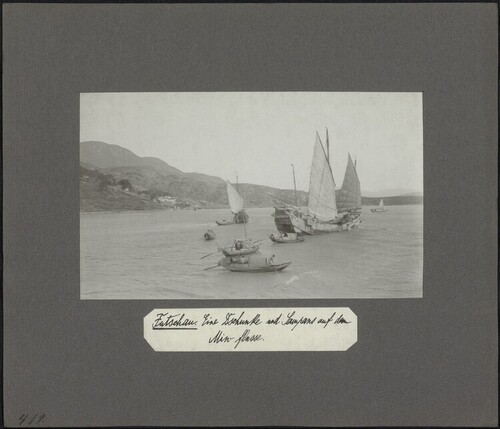 Futschau. Eine Dschunke und Sampans auf dem
Min flusse.
419.